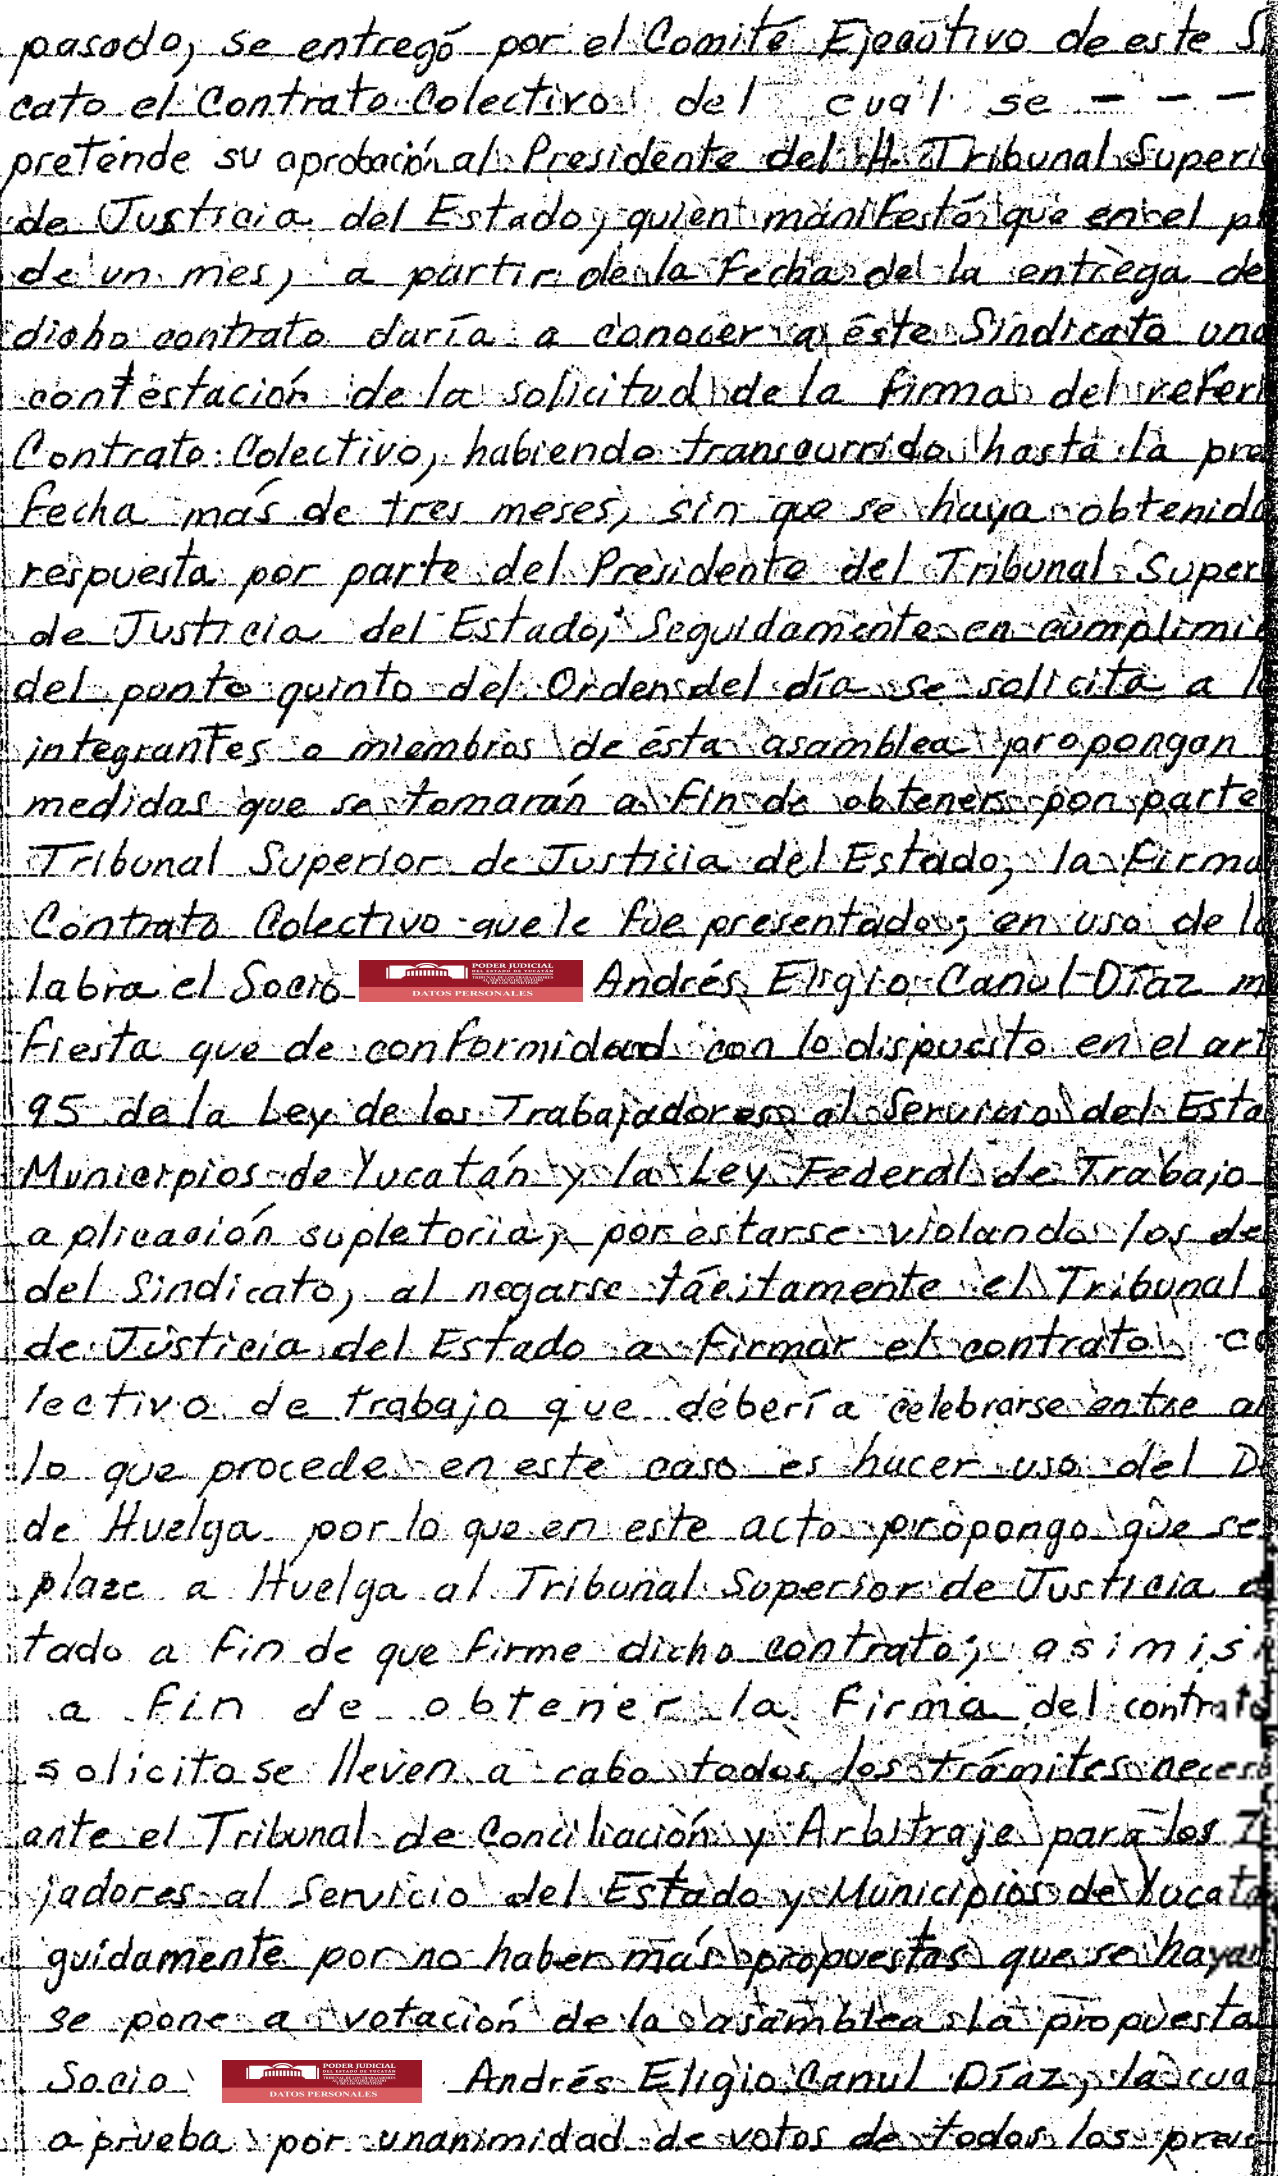 pasado, se entregó por el Comité Ejecutivo de este Si
cato el Contrato Colectivo del cual se - - -
pretende su aprobación al Presidente del H. Tribunal Superi
de Justicia del Estado, quien manifestó que en el p
de un mes, a partir de la fecha de la entrega de
dicho contrato daría a conocer a éste Sindicato una
contestación de la solicitud de la firma del refer
Contrato Colectivo, habiendo transcurrido hasta la pre
fecha más de tres meses, sin que se haya obtenido
respuesta por parte del Presidente del Tribunal Super
de Justicia del Estado; Seguidamente en cumplimie
del punto quinto del Orden del día se solicita a l
integrantes o miembros de ésta asamblea propongan
medidas que se tomarán a fin de obtener por parte
Tribunal Superior de Justicia del Estado, la firma
Contrato Colectivo que le fue presentado; en uso de la
labra el Socio PODER JUDICIAL DEL ESTADO DE YUCATÁN DATOS PERSONALES Andrés Eligio Canul Díaz m
fiesta que de conformidad con lo dispuesto en el art
95 de la Ley de los Trabajadores al Servicio del Esta
Municipios de Yucatán y la Ley Federal de Trabajo
aplicación supletoria, por estarse violando los de
del Sindicato, al negarse tácitamente el Tribunal
de Justicia del Estado a firmar el contrato co
lectivo de trabajo que debería celebrarse entre a
lo que procede en este caso es hacer uso del D
de Huelga por lo que en este acto propongo que se
plaze a Huelga al Tribunal Superior de Justicia
tado a fin de que firme dicho contrato; asimis
a fin de obtener la firma del contrato
solicito se lleven a cabo todos los trámites neces
ante el Tribunal de Conciliación y Arbitraje para los T
jadores al Servicio del Estado y Municipios de Yucat
guidamente por no haber más propuestas que se hayan
se pone a votación de la asamblea la propuesta
Socio PODER JUDICIAL DEL ESTADO DE YUCATÁN DATOS PERSONALES Andrés Eligio Canul Díaz, la cual
aprueba por unanimidad de votos de todos los pres